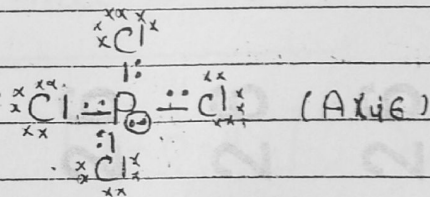 Cl
Cl P Cl (AX4E)
Cl